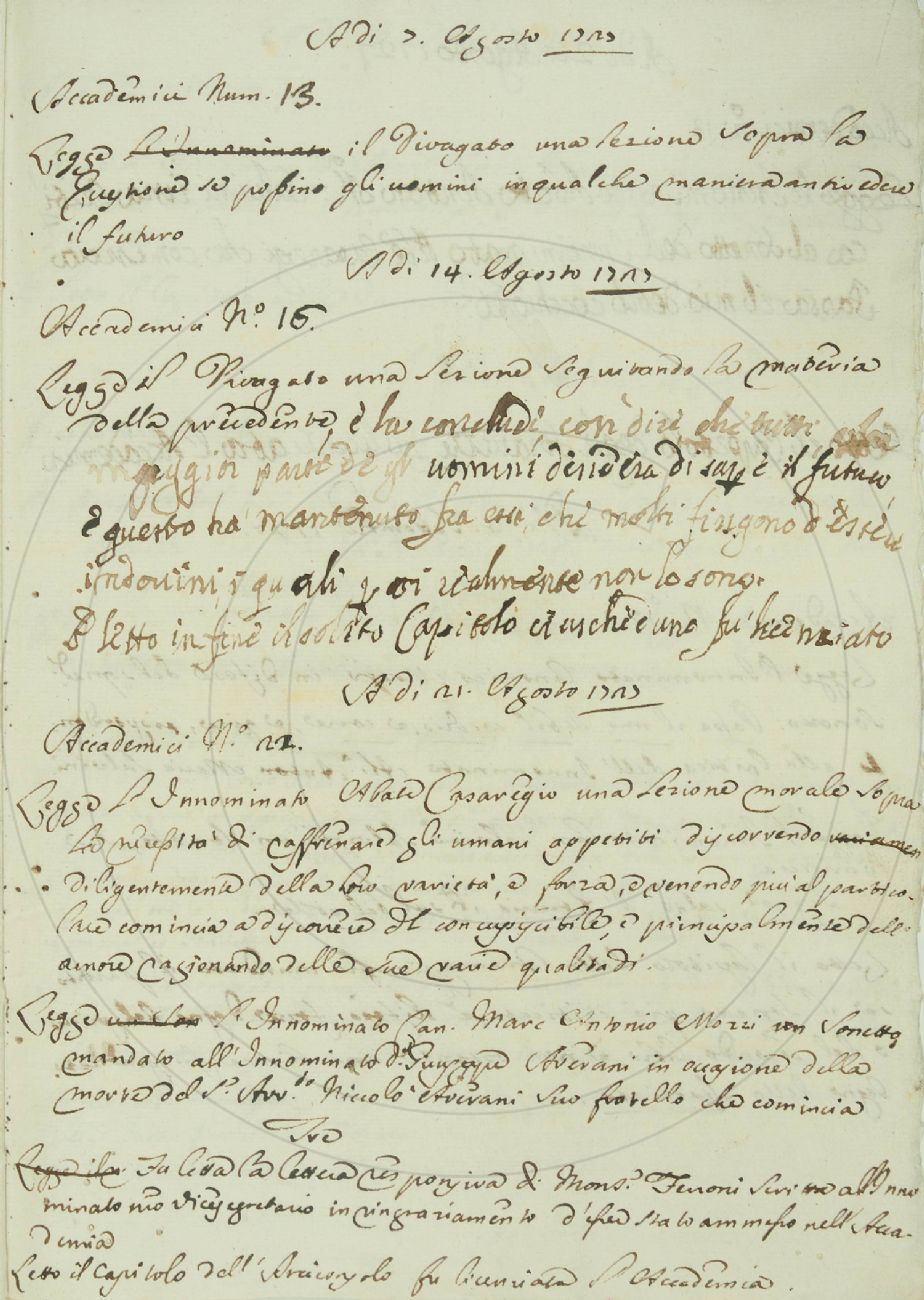 A di 7. Agosto 1727
Accademici Num. 13.
Legge l'Innominato il Divagato una lezione sopra la
Questione se possino gli uomini in qualche maniera antivedere
il futuro
A di 14. Agosto 1727
Accademici N.º 16.
Legge il Divagato una lezione seguitando la materia
della precedente, è la conclude, con dire che
maggior parte de gli uomini desidera di sapere il futuro
e questo ha mantenuto fra essi, che molti fingono d'essere
indovini, i quali poi realmente non lo sono.
E letto in fine il solito Capitolo ciascheduno fu licenziato
A di 21. Agosto 1727
Accademici N.º 22.
Legge l'Innominato Abate Casaregio una lezione morale sopra
la necessità di raffrenare gli umani appetiti discorrendo variamen
diligentemente della loro varietà, e forza, e venendo più al partico-
lare comincia a discorrere del concupiscibile, e principalmente dell'
amore ragionando delle sue varie qualitadi.
Legge un son l'Innominato Can. Marc Antonio Mozzi un Sonetto
mandato all'Innominato D.r Giuseppe Averani in occasione della
morte del S.r Avv.to Niccolò Averani suo fratello che comincia
Tre
Legge il Fu letta la lettera responsiva di Mons.r Ferroni scritta all'Inno
minato nro Vicesegretario in ringraziamento d'esser stato ammesso nell'Acca-
demia
Letto il Capitolo dell'Arciconsolo fu licenziata l'Accademia.